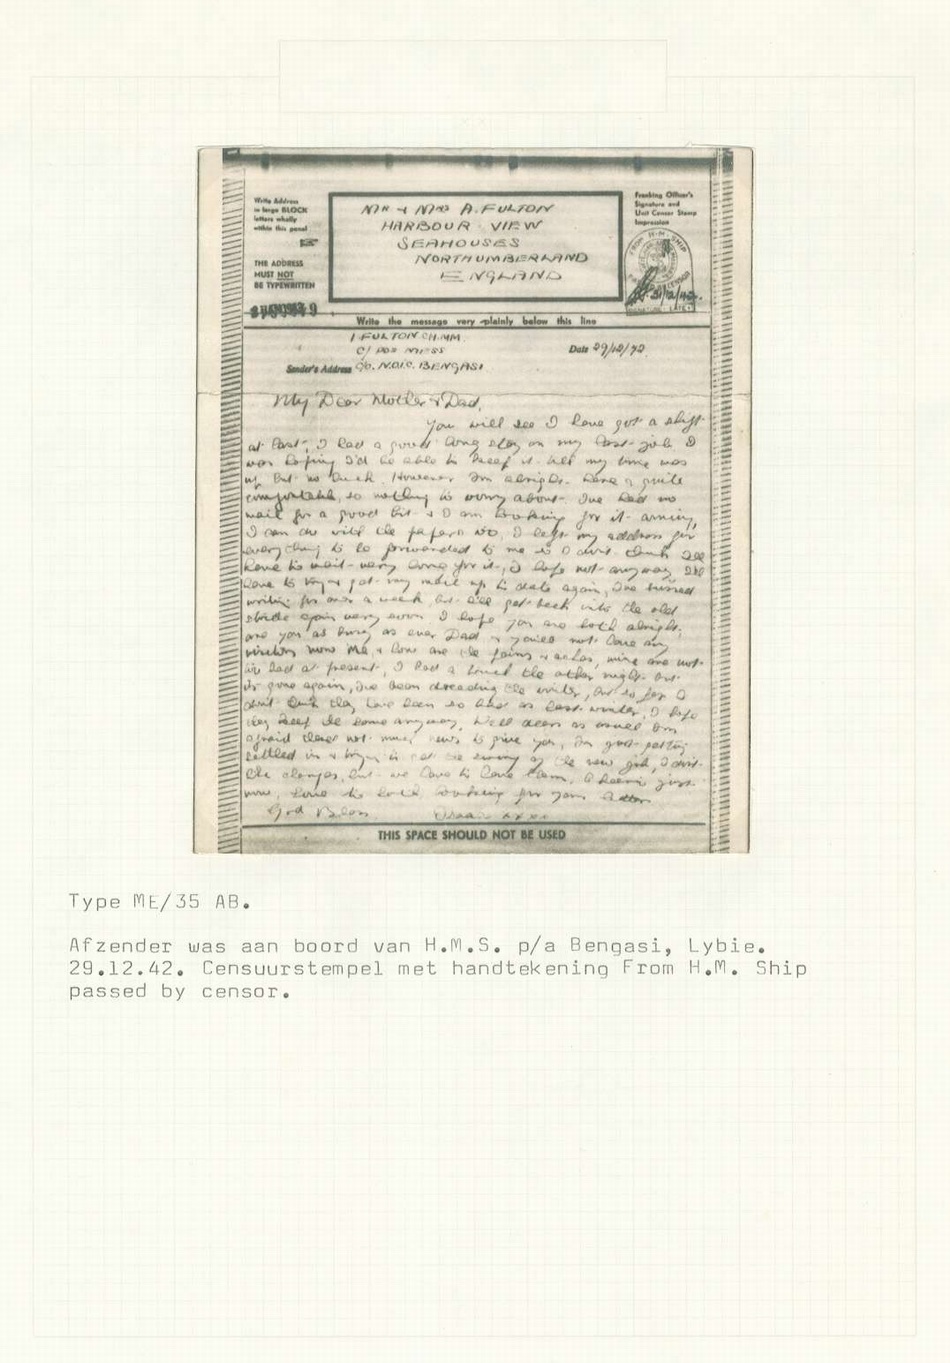 Write Address
in large BLOCK
letters wholly
within this panel
THE ADDRESS
MUST NOT
BE TYPEWRITTEN
MR & MRS A. FULTON
HARBOUR VIEW
SEAHOUSES
NORTHUMBERLAND
ENGLAND
Franking Officer's
Signature and
Unit Censor Stamp
Impression
FROM H.M. SHIP
31/12/42.
Write the message very plainly below this line
FULTON CH.MM.
C/ MESS
Sender's Address c/o. N.O.I.C. BENGASI
Date 29/12/42
My Dear Mother & Dad,
You will see I have got a shift
at last, I had a good long stay on my last job I
was hoping I'd be able to keep it till my time was
up but no luck. However I'm alright here & quite
comfortable, so nothing to worry about. I've had no
mail for a good bit & I am looking for it arriving,
I can do with the papers too, I left my address for
everything to be forwarded to me so I don't think I'll
have to wait very long for it, I hope not anyway I'll
have to try & get my mail up to date again, I've missed
writing for over a week, but I'll get back into the old
stride again very soon I hope you are both alright,
are you as busy as ever Dad & you'll not have any
visitors now Ma, & how are the pains & aches, mine are not
so bad at present, I had a touch the other night but
it's gone again, I've been dreading the winter, but so far I
don't think they have been so bad as last winter, I hope
they keep the same anyway. Well dears as usual I'm
afraid there's not much news to give you, I'm just getting
settled in & trying to get the swing of the new job, I don't
like changes, but we have to have them,
now, love to both, looking for your letter
God Bless
THIS SPACE SHOULD NOT BE USED
Type ME/35 AB.
Afzender was aan boord van H.M.S. p/a Bengasi, Lybie.
29.12.42. Censuurstempel met handtekening From H.M. Ship
passed by censor.